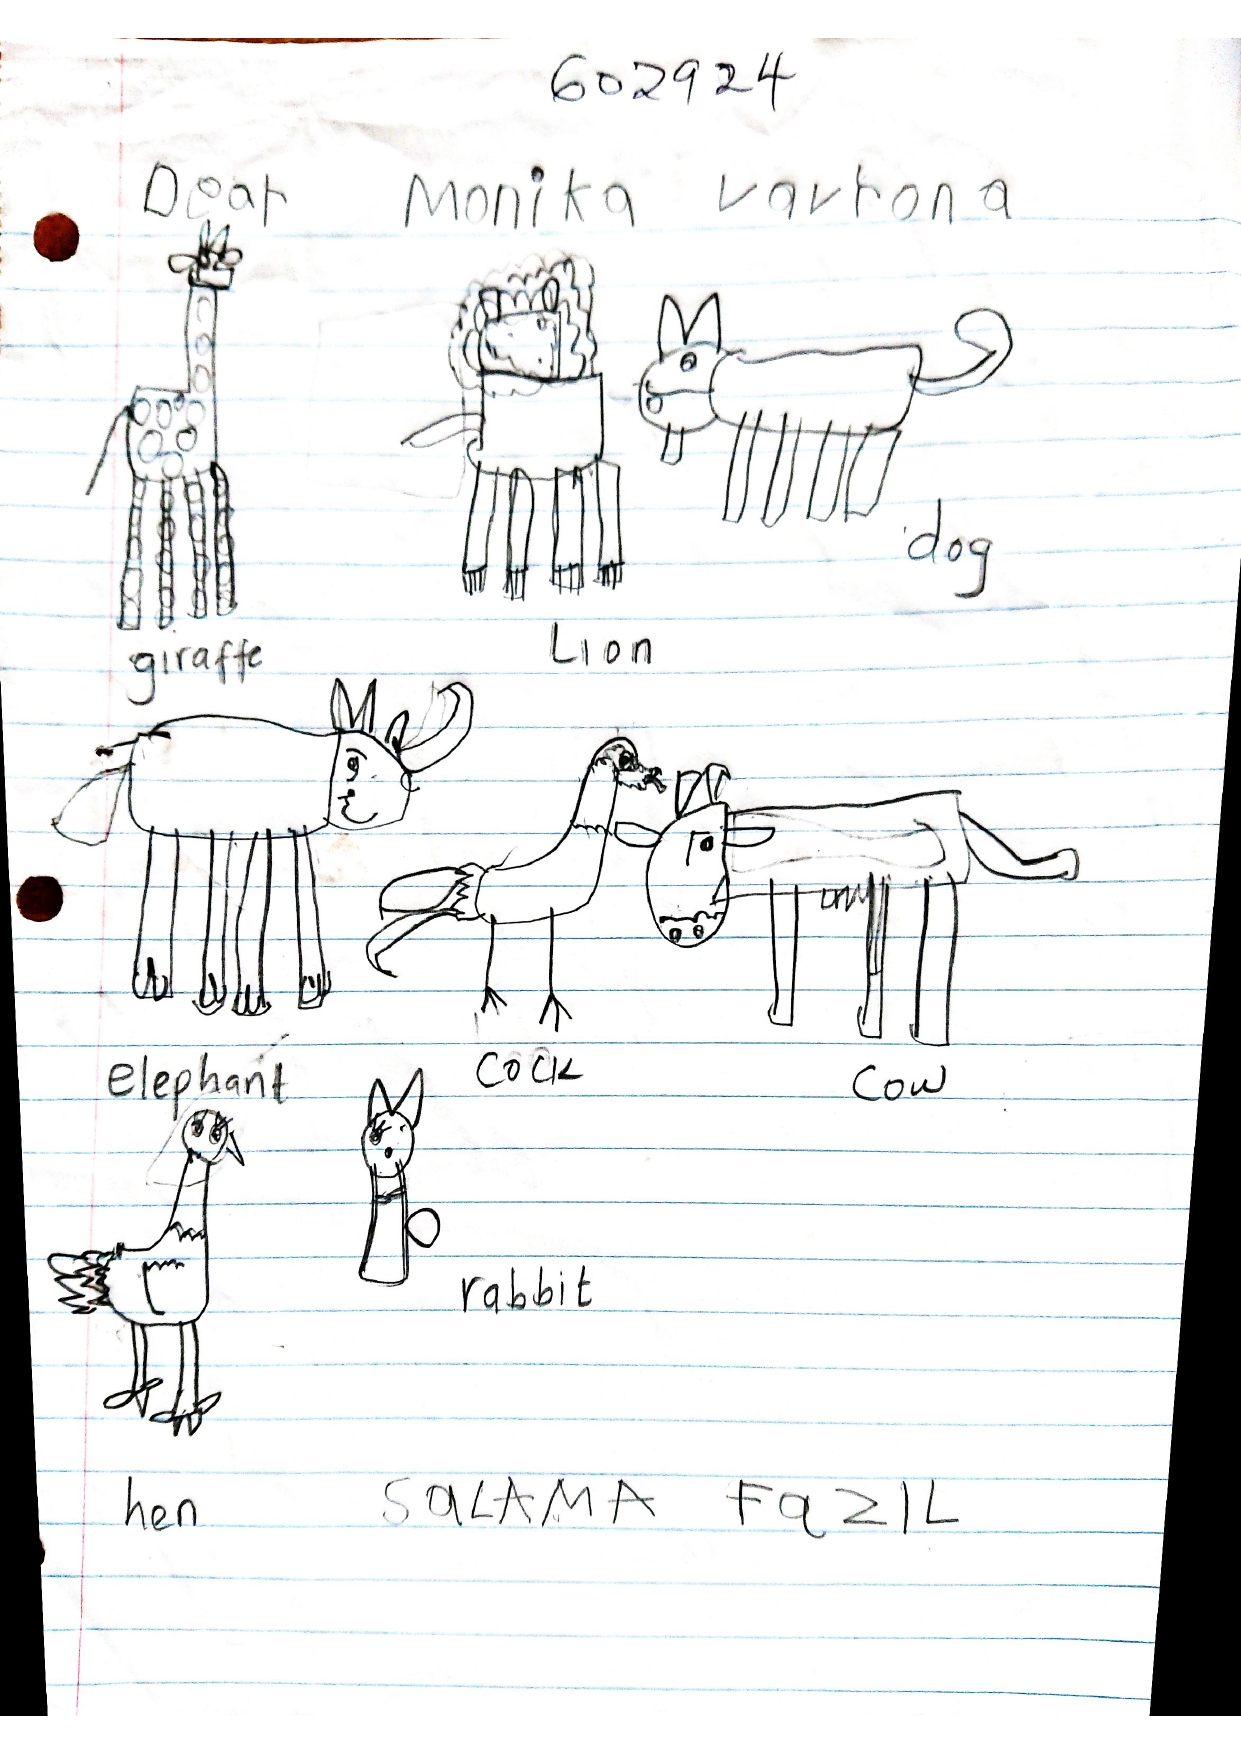 602924
Dear Monika vavrona
dog
giraffe Lion
elephant cock cow
rabbit
hen SALAMA FaZIL